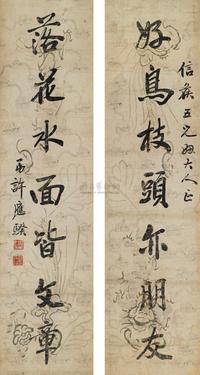 信矦五兄姻大人正
好鳥枝頭亦朋友
落花水面皆文章
弟許應騤